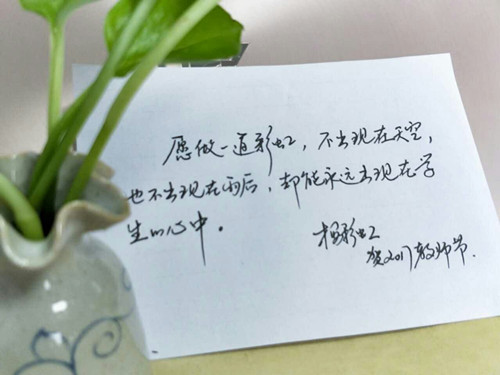 愿做一道彩虹，不出现在天空，
也不出现在雨后，却能永远出现在学
生的心中。
彩虹
贺2017教师节.